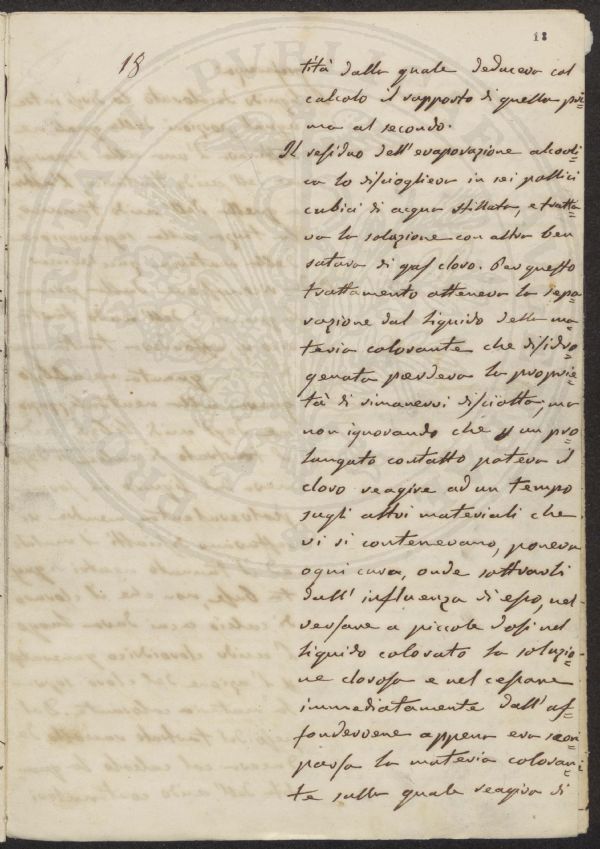 18
18
tità dalla quale deduceva col
calcolo il rapporto di quella pri=
ma al secondo.
Il residuo dell'evaporazione alcooli=
ca lo discioglieva in sei pollici
cubici di acqua stillata, e tratta=
va la soluzione con altra ben
satura di gas cloro. Per questo
trattamento otteneva la sepa=
razione dal liquido della ma=
teria colorante che disidro=
genata perdeva la proprie=
tà di rimanervi disciolta; ma
non ignorando che un pro=
lungato contatto poteva il
cloro reagire ad un tempo
sugli altri materiali che
vi si contenevano, poneva
ogni cura, onde sottrarli
dall'influenza di esso, nel
versare a piccole dosi nel
liquido colorato la soluzio=
ne clorosa e nel cessare
immediatamente dall'af=
fondervene appena era scom
parsa la materia coloran=
te sulla quale reagiva di